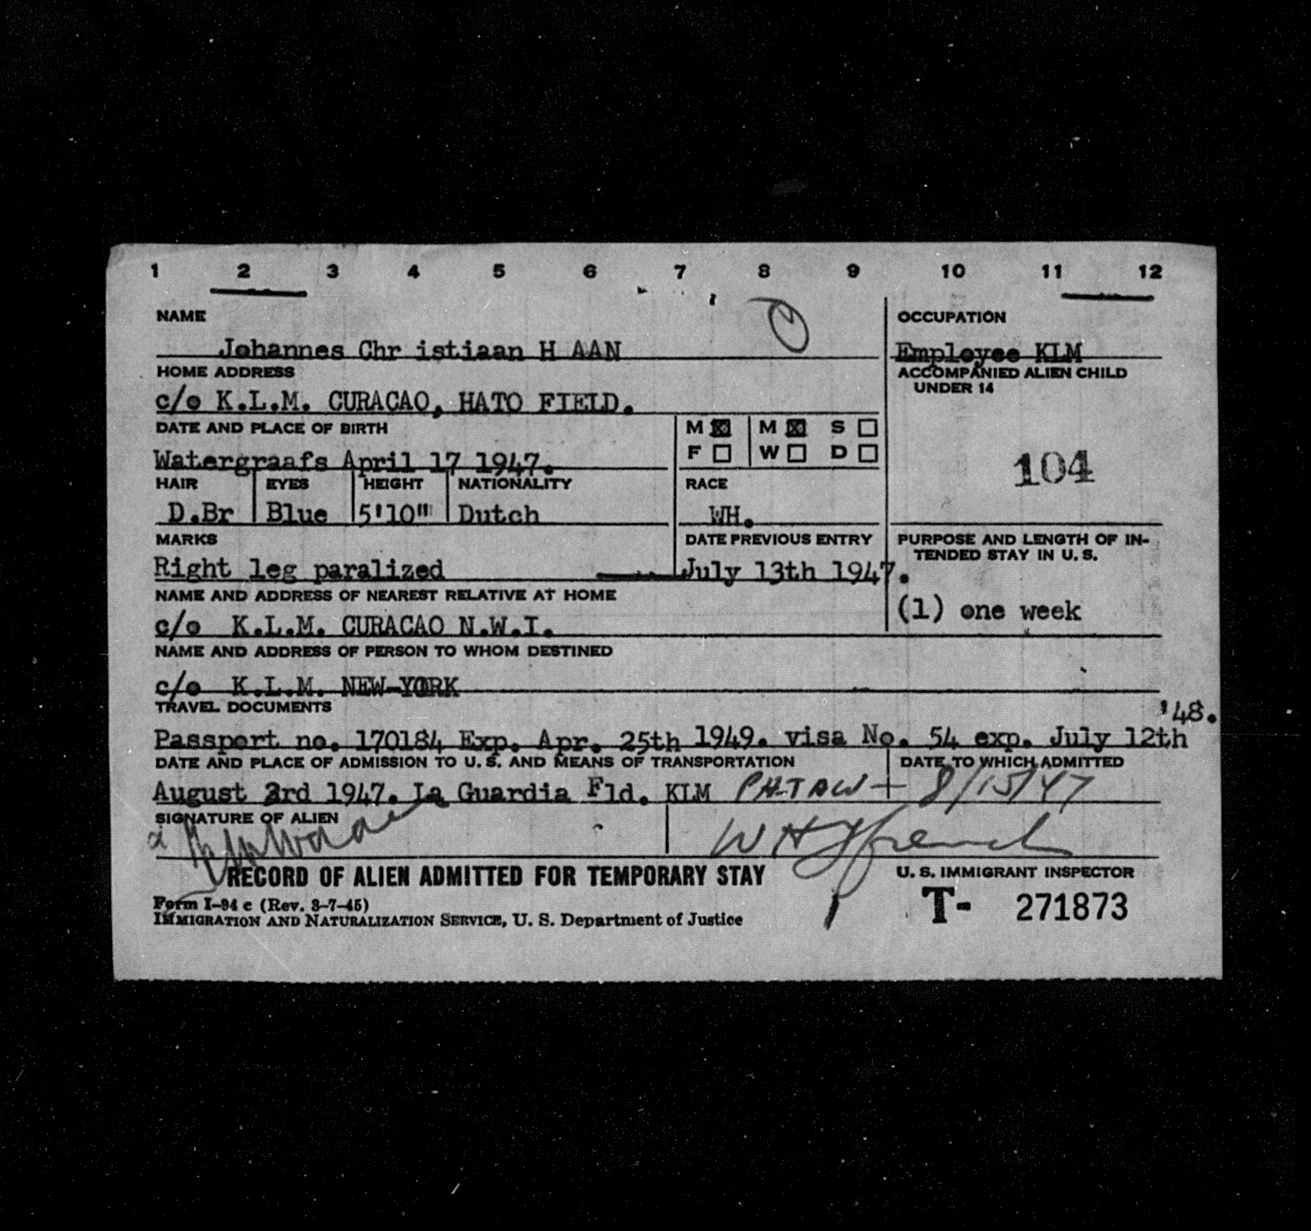 1 2 3 4 5 6 7 8 9 10 11 12
NAME
Johannes Chr istiaan H AAN
OCCUPATION
Employee KLM
HOME ADDRESS
c/o K.L.M. CURACAO, HATO FIELD.
ACCOMPANIED ALIEN CHILD
UNDER 14
104
DATE AND PLACE OF BIRTH
Watergraafs April 17 1947.
M ☒ M ☒ S ☐
F ☐ W ☐ D ☐
HAIR EYES HEIGHT NATIONALITY RACE
D.Br Blue 5'10" Dutch WH.
MARKS
Right leg paralized
DATE PREVIOUS ENTRY
July 13th 1947.
PURPOSE AND LENGTH OF IN-
TENDED STAY IN U. S.
(1) one week
NAME AND ADDRESS OF NEAREST RELATIVE AT HOME
c/o K.L.M. CURACAO N.W.I.
NAME AND ADDRESS OF PERSON TO WHOM DESTINED
c/o K.L.M. NEW-YORK
TRAVEL DOCUMENTS
'48.
Passport no. 170184 Exp. Apr. 25th 1949. visa No. 54 exp. July 12th
DATE AND PLACE OF ADMISSION TO U. S. AND MEANS OF TRANSPORTATION
DATE TO WHICH ADMITTED
August 3rd 1947. La Guardia Fld. KLM PH-TAW 8/15/47
SIGNATURE OF ALIEN
RECORD OF ALIEN ADMITTED FOR TEMPORARY STAY
U. S. IMMIGRANT INSPECTOR
Form I-94 c (Rev. 3-7-45)
IMMIGRATION AND NATURALIZATION SERVICE, U. S. Department of Justice
T- 271873